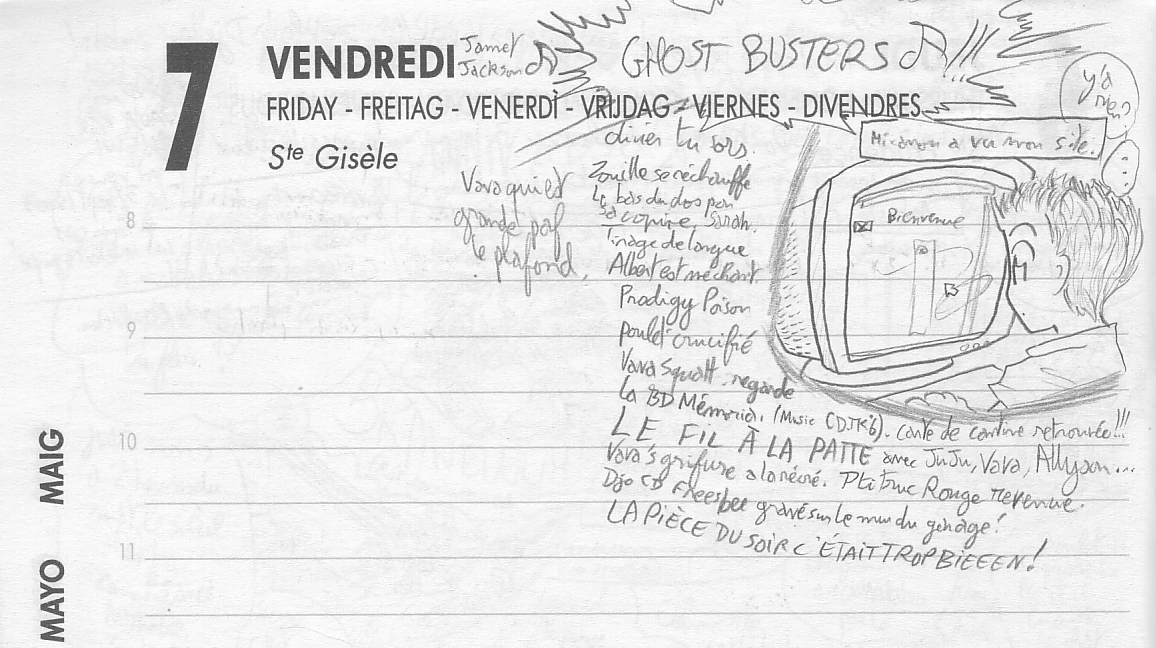 7
VENDREDI
Janet
Jackson
GHOST BUSTERS !!!
FRIDAY - FREITAG - VENERDÌ - VRIJDAG - VIERNES - DIVENDRES
Ste Gisèle
y'a
rien?
...
olivier tu sors.
Micanou a vu mon site.
Bienvenue
Vava qui est
grande paf
le plafond.
Zouille se réchauffe
le bas du dos par
sa copine, Sarah.
Tirage de langue
Albert est méchant.
Prodigy Poison
poulet crucifié
Vava Squatt. regarde
la BD Mémoria. (Music CDJK6). carte de cantine retrouvée!!!
LE FIL À LA PATTE avec JuJu, Vava, Allyson...
Vava's griffure a la récré. Ptit truc Rouge revenue.
Djo CD Freesbee gravé sur le mur du garage!
LA PIÈCE DU SOIR C'ÉTAIT TROP BIEEEN!
8
9
10
11
MAIG
MAYO